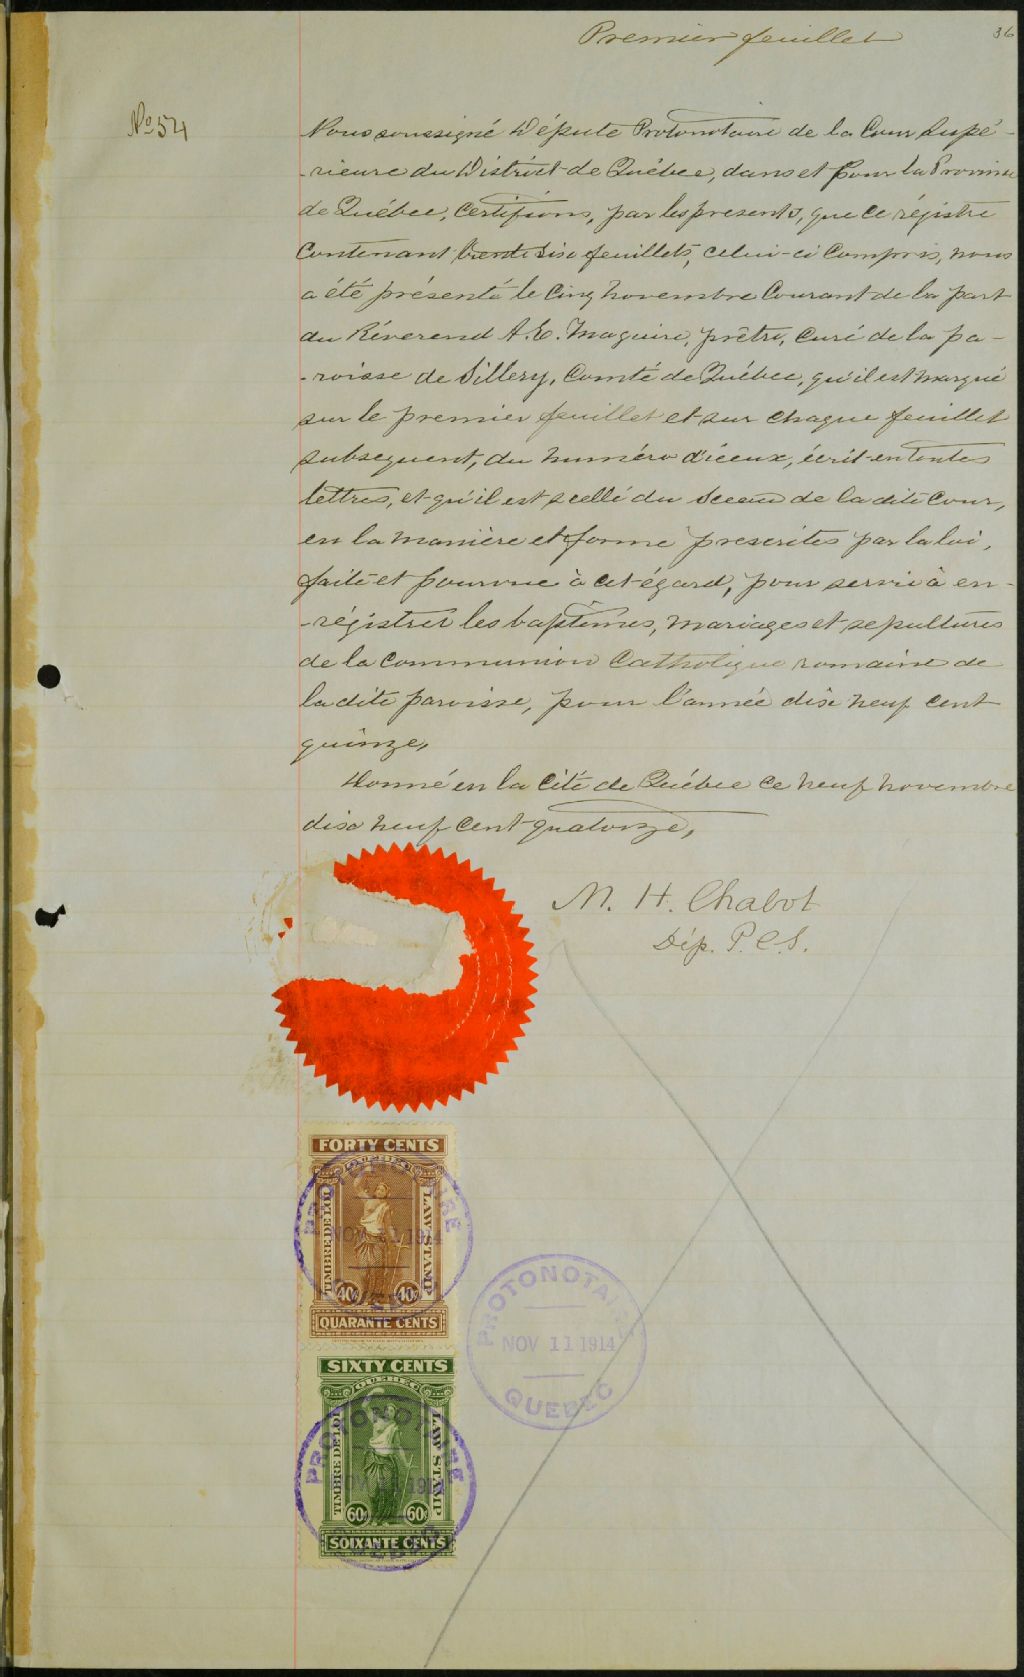 Premier feuillet
36
No 54
Nous soussigné Député Protonotaire de la Cour Supé-
-rieure du District de Québec, dans et pour la Province
de Québec, Certifions, par les présents, que ce régistre
Contenant trente six feuillets, celui-ci Compris, nous
a été présenté le Cinq novembre Courant de la part
du Réverend A. E. Maguire, prêtre, Curé de la pa-
-roisse de Sillery, Comté de Québec, qu'il est marqué
sur le premier feuillet et sur chaque feuillet
subsequent, du numéro d'iceux, écrit en toutes
lettres, et qu'il est scellé du Sceau de la dite Cour,
en la manière et forme prescrites par la loi,
faite et pourvue à cet égard, pour servir à en-
-régistrer les baptêmes, mariages et sepultures
de la Communion Catholique romaine de
la dite paroisse, pour l'année dix neuf cent
quinze,
Donné en la Cité de Québec ce neuf novembre
dix neuf cent quatorze,
M. H. Chabot
Dép. P. C. S.
FORTY CENTS
QUEBEC
TIMBRE DE LOI
LAW STAMP
40c 40c
QUARANTE CENTS
PROTONOTAIRE
NOV 11 1914
QUEBEC
PROTONOTAIRE
NOV 11 1914
QUEBEC
SIXTY CENTS
QUEBEC
TIMBRE DE LOI
LAW STAMP
60c 60c
SOIXANTE CENTS
PROTONOTAIRE
NOV 11 1914
QUEBEC